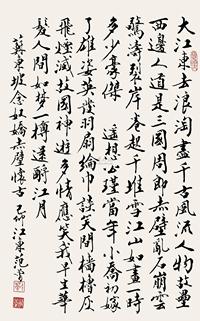 大江東去浪淘盡千古風流人物故壘
西邊人道是三國周郎赤壁亂石崩雲
驚濤裂岸卷起千堆雪江山如畫一時
多少豪傑 遙想公瑾當年小喬初嫁
了雄姿英發羽扇綸巾談笑間檣櫓灰
飛煙滅故國神遊多情應笑我早生華
髮人間如夢一樽還酹江月
蘇東坡念奴嬌赤壁懷古 江東范